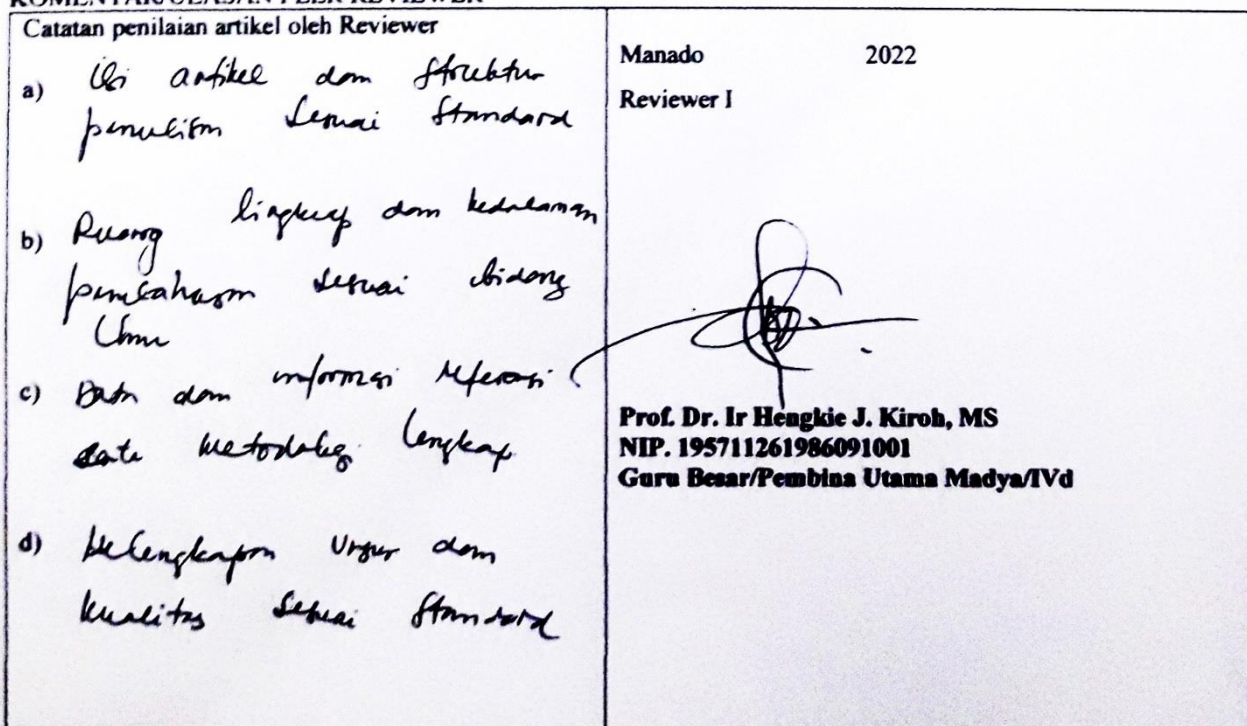 KOMENTAR/ULASAN PEER REVIEWER
Catatan penilaian artikel oleh Reviewer
a) Isi artikel dan Struktur
penulisan Sesuai Standard
b) Ruang lingkup dan kedalaman
pembahasan sesuai bidang
Ilmu
c) Data dan informasi referensi
serta metodologi lengkap
d) Kelengkapan Unsur dan
kualitas Sesuai Standard
Manado 2022
Reviewer I
Prof. Dr. Ir Hengkie J. Kiroh, MS
NIP. 195711261986091001
Guru Besar/Pembina Utama Madya/IVd